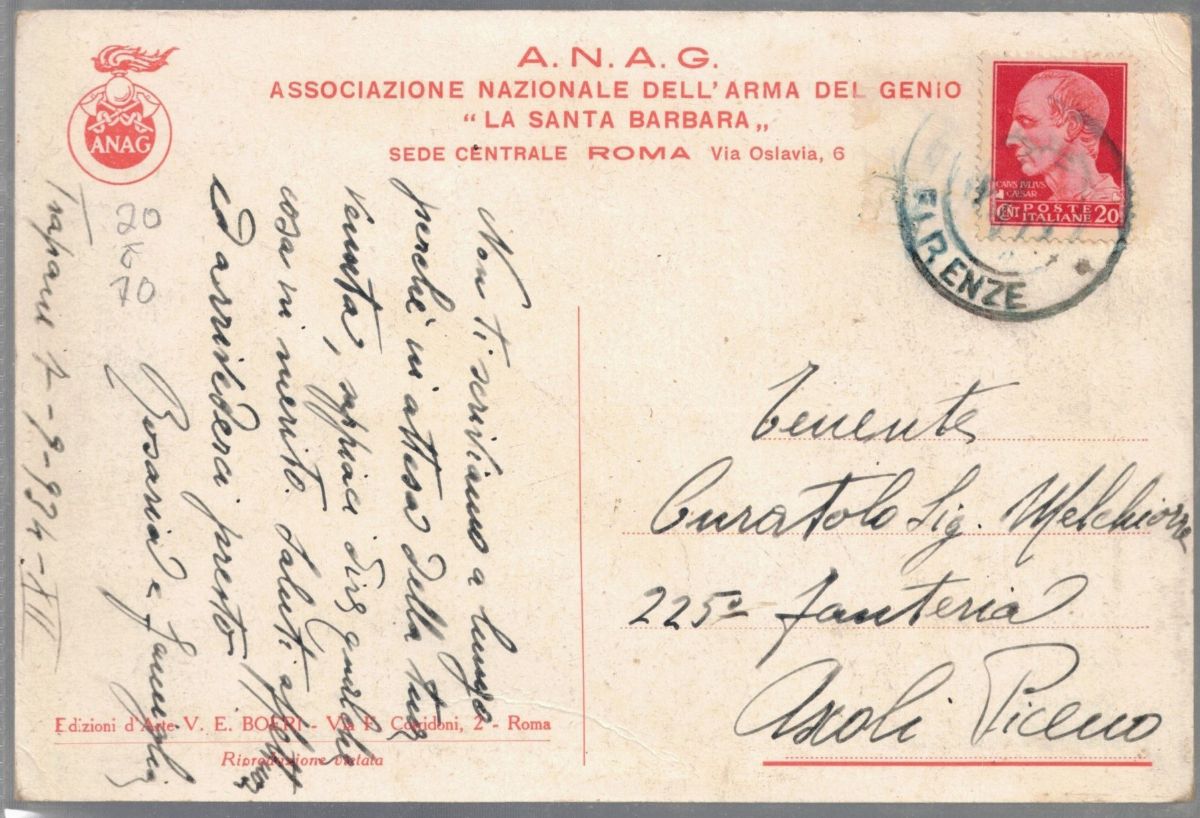 A.N.A.G.
ASSOCIAZIONE NAZIONALE DELL'ARMA DEL GENIO
"LA SANTA BARBARA„
SEDE CENTRALE ROMA Via Oslavia, 6
ANAG
CAIVS IVLIVS
CAESAR
CENT POSTE ITALIANE 20
FIRENZE
20
70
Trapani 7-9-934-XII
Non ti scriviamo a lungo
perchè in attesa della tua
venuta, sappiaci dire qualche
cosa in merito. Saluti affett
ed arrivederci presto
Rosaria e famiglia
Tenente
Curatolo Sig. Melchiorre
225º Fanteria
Ascoli Piceno
Edizioni d'Arte V. E. BOERI - Via F. Corridoni, 2 - Roma
Riproduzione vietata